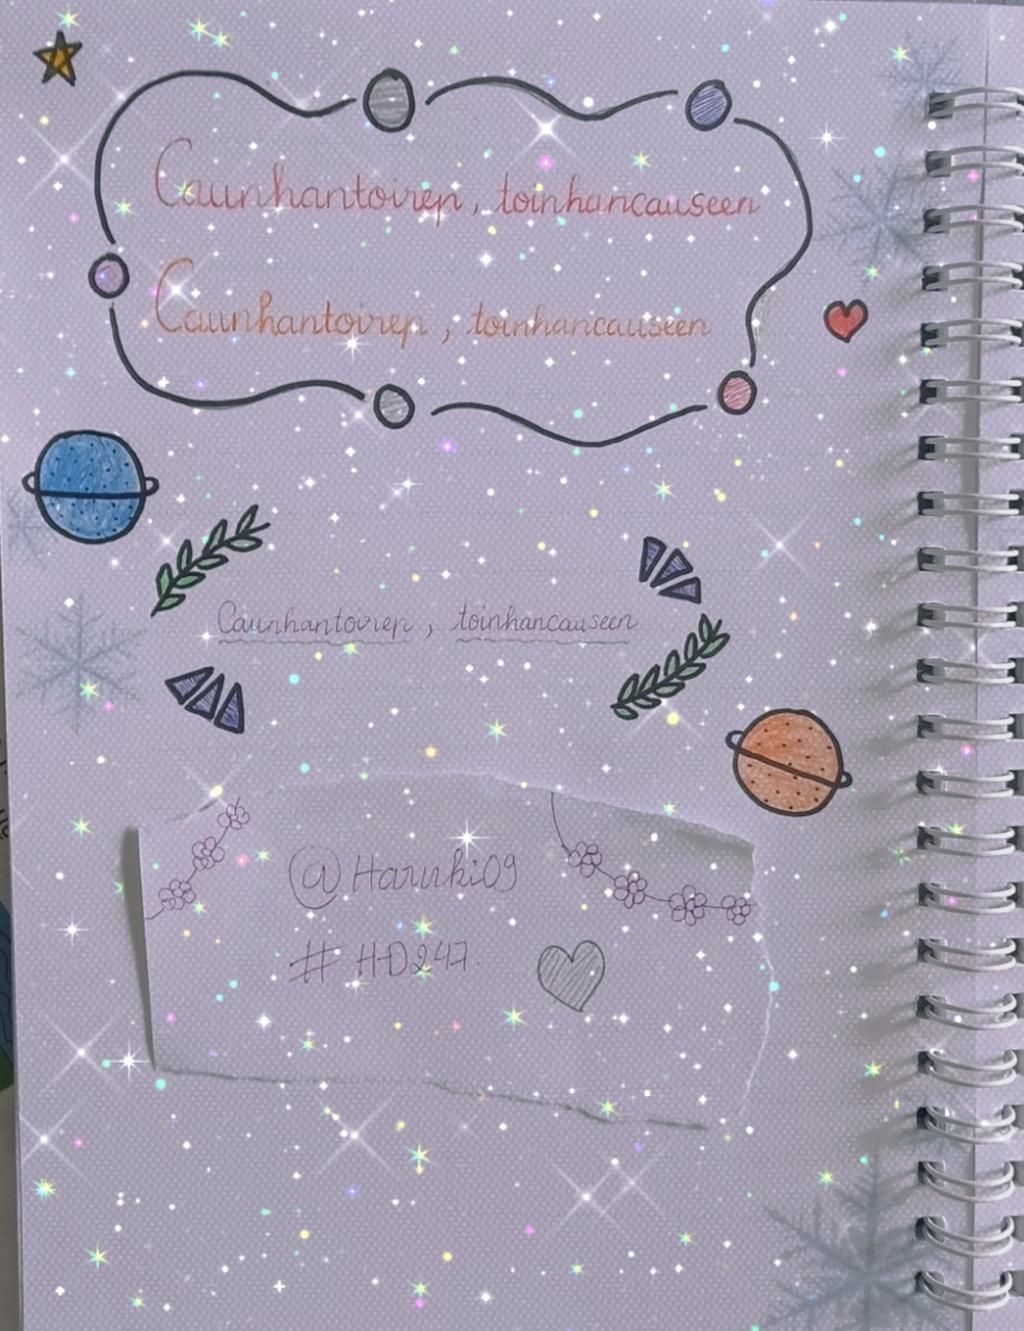 Caunhantoirep, toinhancauseen
Caunhantoirep, toinhancauseen
Caunhantoirep, toinhancauseen
@Haruki09
#HD247.